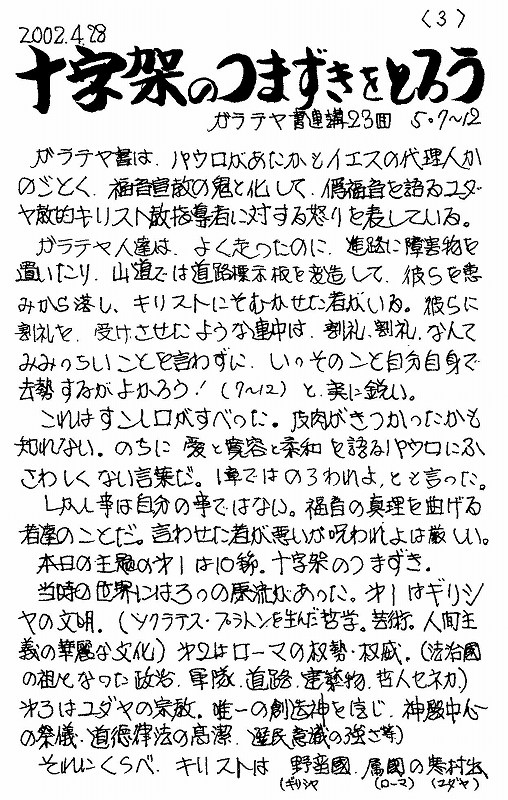 〈3〉
2002.4.28
十字架のつまずきをとろう
ガラテヤ書連講23回 5・7〜12
ガラテヤ書は、パウロがあたかもイエスの代理人か
のごとく、福音宣教の鬼と化して、偽福音を語るユダ
ヤ教的キリスト教指導者に対する怒りを表している。
ガラテヤ人達は、よく走ったのに、進路に障害物を
置いたり、山道では道路標示板を改造して、彼らを恵
みから落し、キリストにそむかせた者がいる。彼らに
割礼を、受けさせたような連中は、割礼、割礼、なんて
みみっちいことを言わずに、いっそのこと自分自身で
去勢するがよかろう!(7〜12)と、実に鋭い。
これはすこし口がすべった。皮肉がきつかったかも
知れない。のちに愛と寛容と柔和を語るパウロにふ
さわしくない言葉だ。1章ではのろわれよ、とと言った。
しかし幸は自分の幸ではない。福音の真理を曲げる
者達のことだ。言わせた者が悪いが呪われよは厳しい。
本日の主題の才1は10節。十字架のつまずき.
当時の世界には3つの源流があった。才1はギリシ
ヤの文明.(ソクラテス・プラトンを生んだ哲学。芸術。人間主
義の華麗な文化)才2はローマの权勢・权威.(法治国
の祖となった政治.軍隊.道路.建築物.哲人セネカ)
才3はユダヤの宗教。唯一の創造神を信じ.神殿中心
の祭儀・道徳律法の高潔.選民意識の強さ等)
それにくらべ、キリストは 野蛮國.属國の寒村出
(ギリシヤ (ローマ) (ユダヤ)